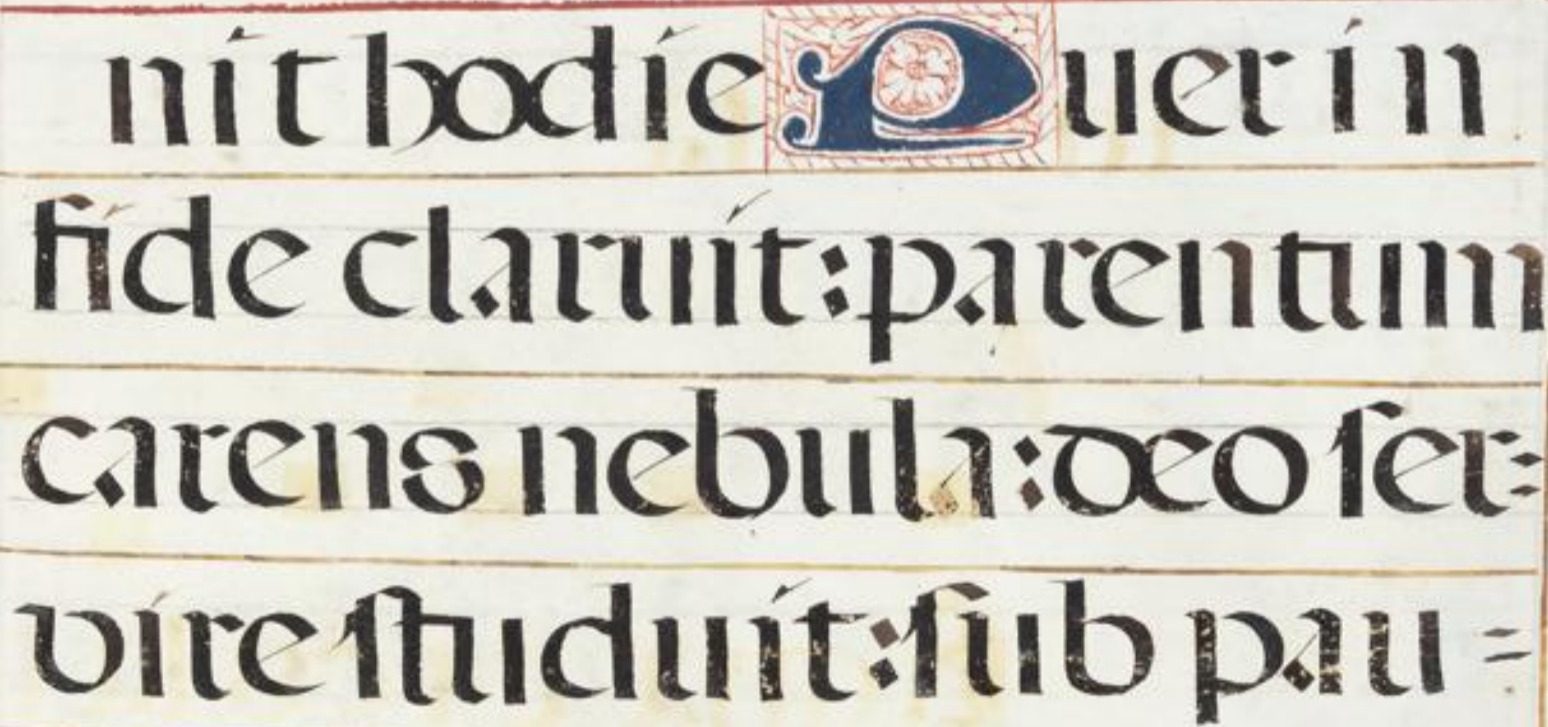 nit hodie Puer in
fide claruit: parentum
carens nebula: deo ser=
vire studuit: sub pau=